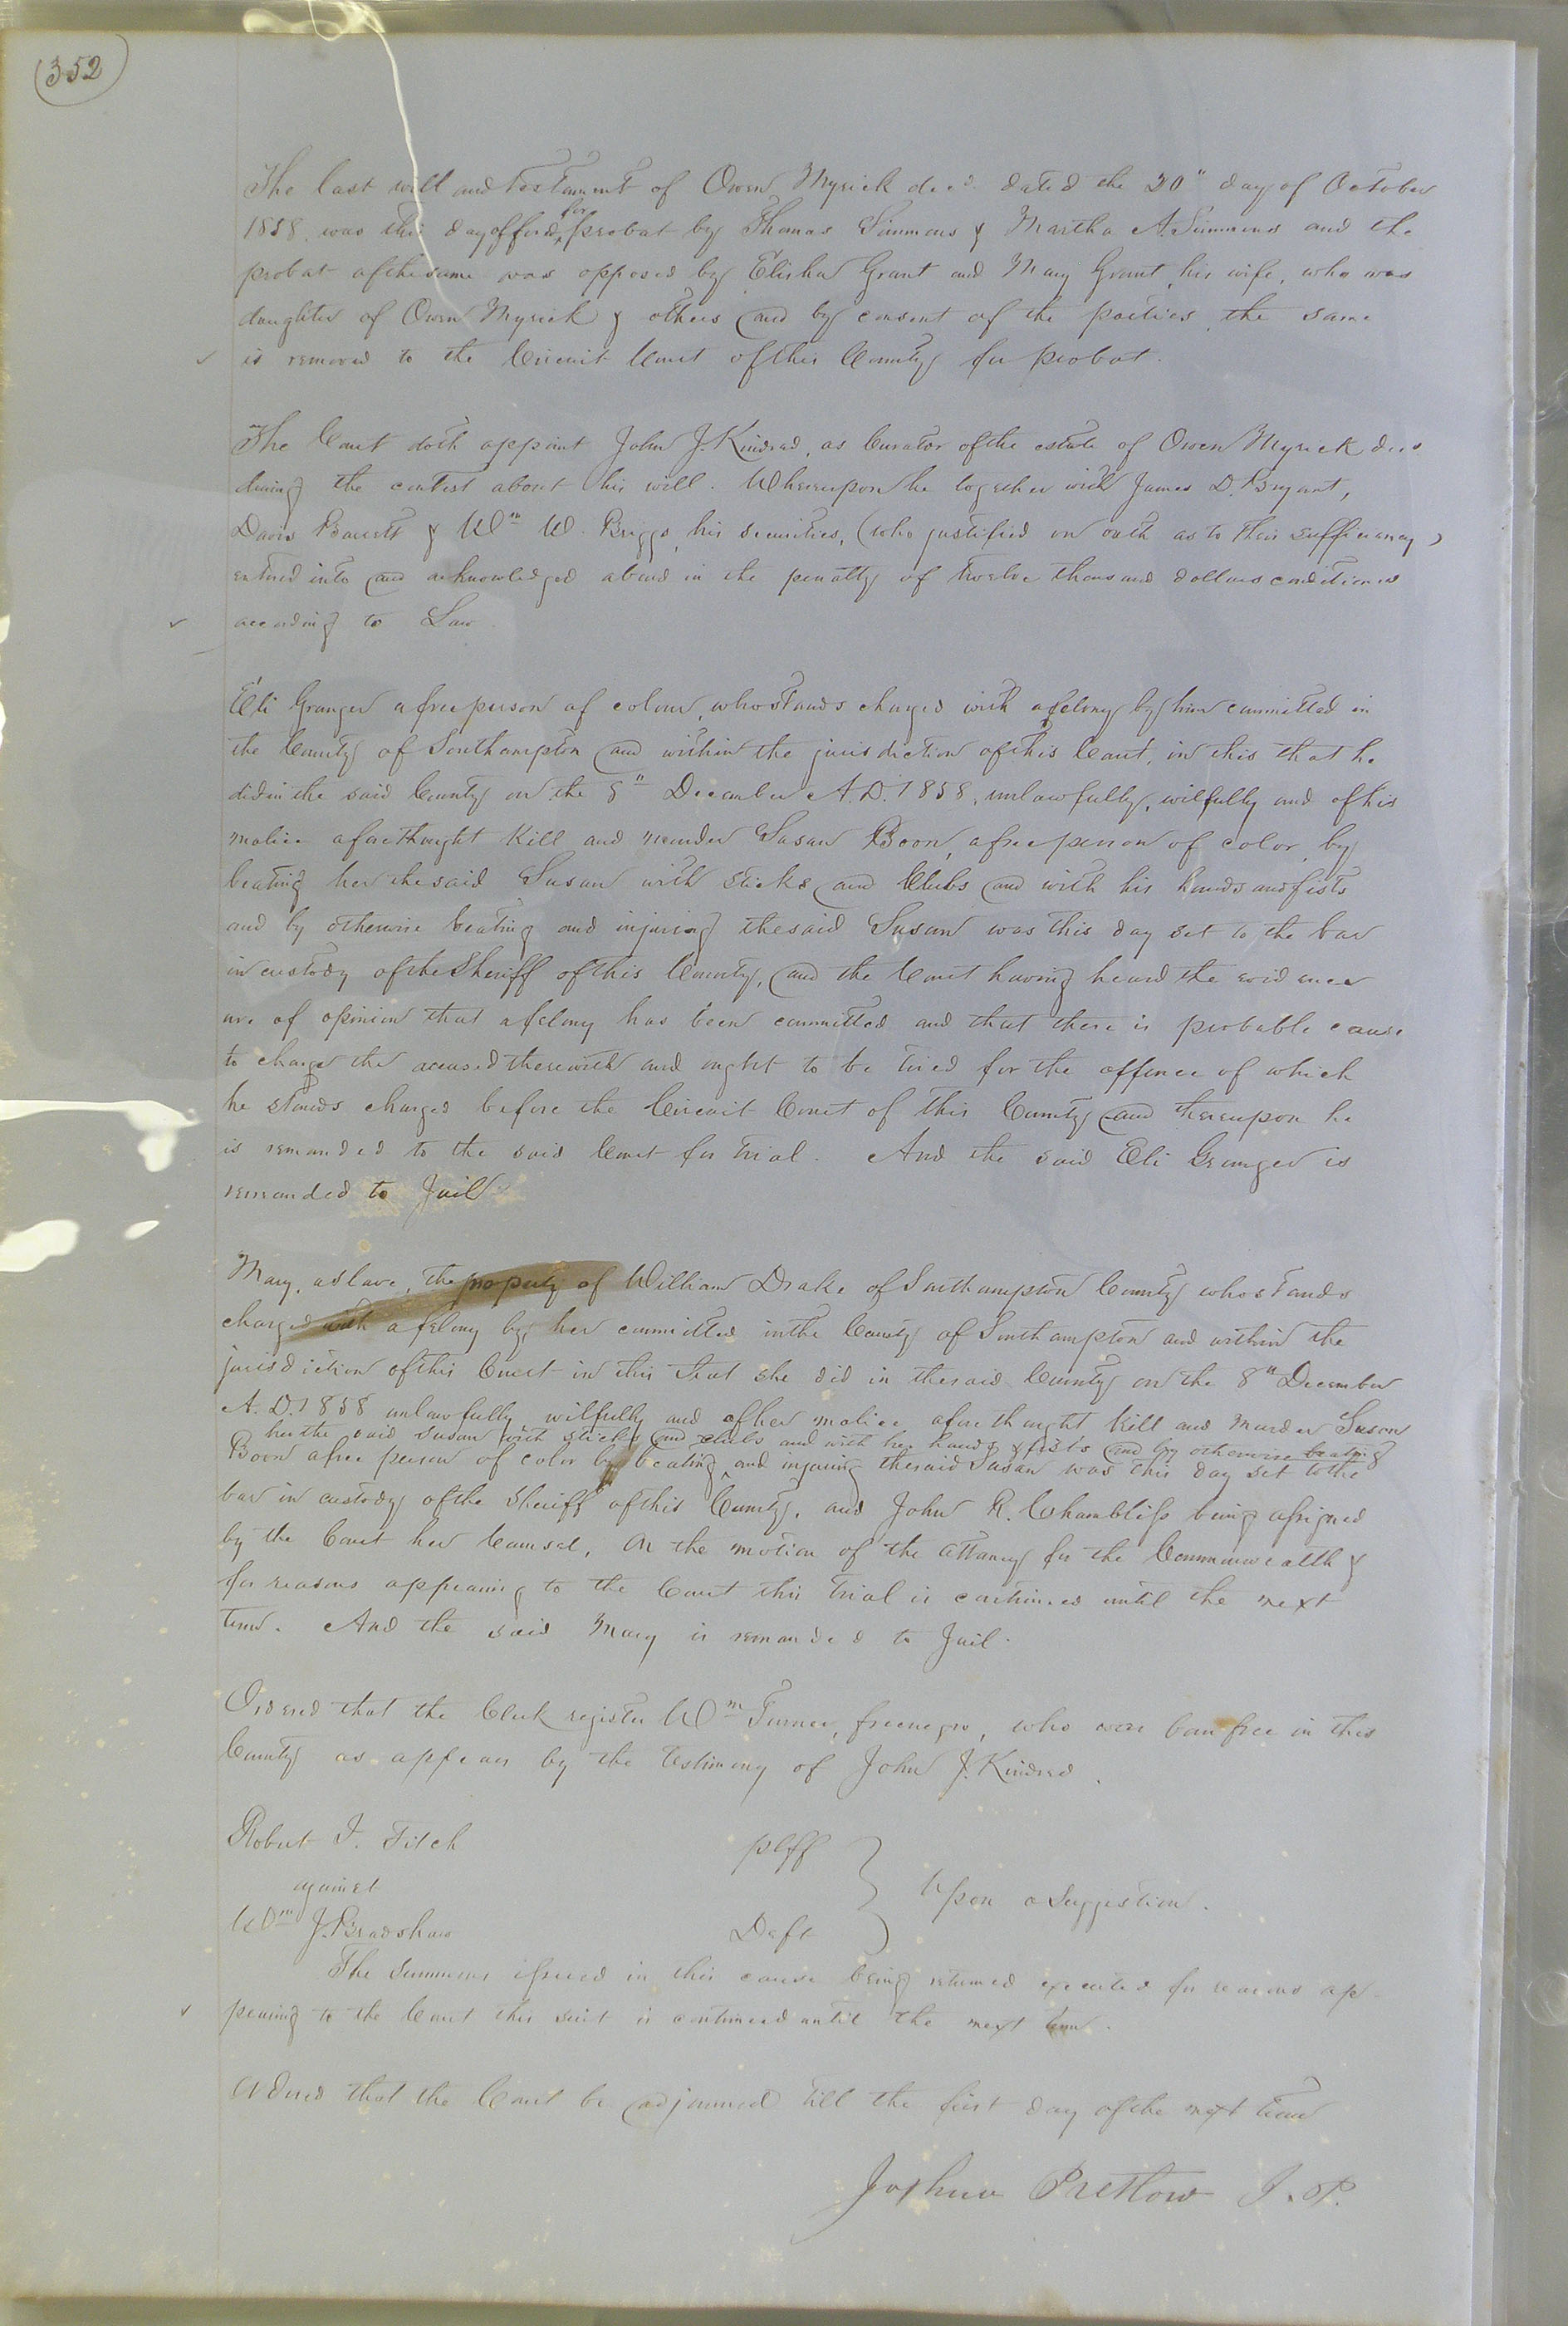 352
The last will and testament of Owen Myrick decd. dated the 20" day of October
1858, was this day offered for probat by Thomas Simmons & Martha A. Simmons and the
probat of the same was opposed by Elisha Grant and Mary Grant, his wife, who was
daughter of Owen Myrick & others and by consent of the parties, the same
is removed to the Circuit Court of this County for probat.
The Court doth appoint John J. Kindred, as Curator of the estate of Owen Myrick decd
during the contest about his will. Whereupon he together with James D. Bryant,
Davis Barrett & Wm W. Briggs, his securities, (who justified on oath as to their sufficiency)
entered into and acknowledged a bond in the penalty of twelve thousand dollars conditioned
according to Law.
Eli Granger a free person of colour, who stands charged with a felony by him committed in
the County of Southampton and within the jurisdiction of this Court, in this that he
did in the said County on the 8" December A.D. 1858, unlawfully, wilfully and of his
malice aforethought Kill and murder Susan Boon, a free person of color, by
beating her the said Susan with sticks and Clubs and with his hands and fists
and by otherwise beating and injuring the said Susan was this day set to the bar
in custody of the Sheriff of this County, and the Court having heard the evidence
are of opinion that a felony has been committed and that there is probable cause
to charge the accused therewith and ought to be tried for the offence of which
he stands charged before the Circuit Court of this County and thereupon he
is remanded to the said Court for trial. And the said Eli Granger is
remanded to Jail
Mary, a slave, the property of William Drake of Southampton County who stands
charged with a felony by her committed in the County of Southampton and within the
jurisdiction of this Court in this that she did in the said County on the 8" December
A.D. 1858 unlawfully, wilfully and of her malice aforethought kill and murder Susan
her the said Susan with sticks and clubs and with her hands & fists and by otherwise beating
Boon a free person of color by beating and injuring the said Susan was this day set to the
bar in custody of the Sheriff of this County, and John R. Chambliss being assigned
by the Court her Counsel, On the motion of the Attorney for the Commonwealth &
for reasons appearing to the Court this trial is continued until the next
term. And the said Mary is remanded to Jail.
Ordered that the Clerk register Wm Turner, free negro, who was born free in this
County as appears by the testimony of John J. Kindred.
Robert I. Fitch plff
against Upon a Suggestion.
Wm J. Bradshaw Deft
The Summons issued in this cause being returned executed for reasons ap-
pearing to the Court this suit is continued until the next term.
Ordered that the Court be adjourned till the first day of the next term
Joshua Pretlow J.P.